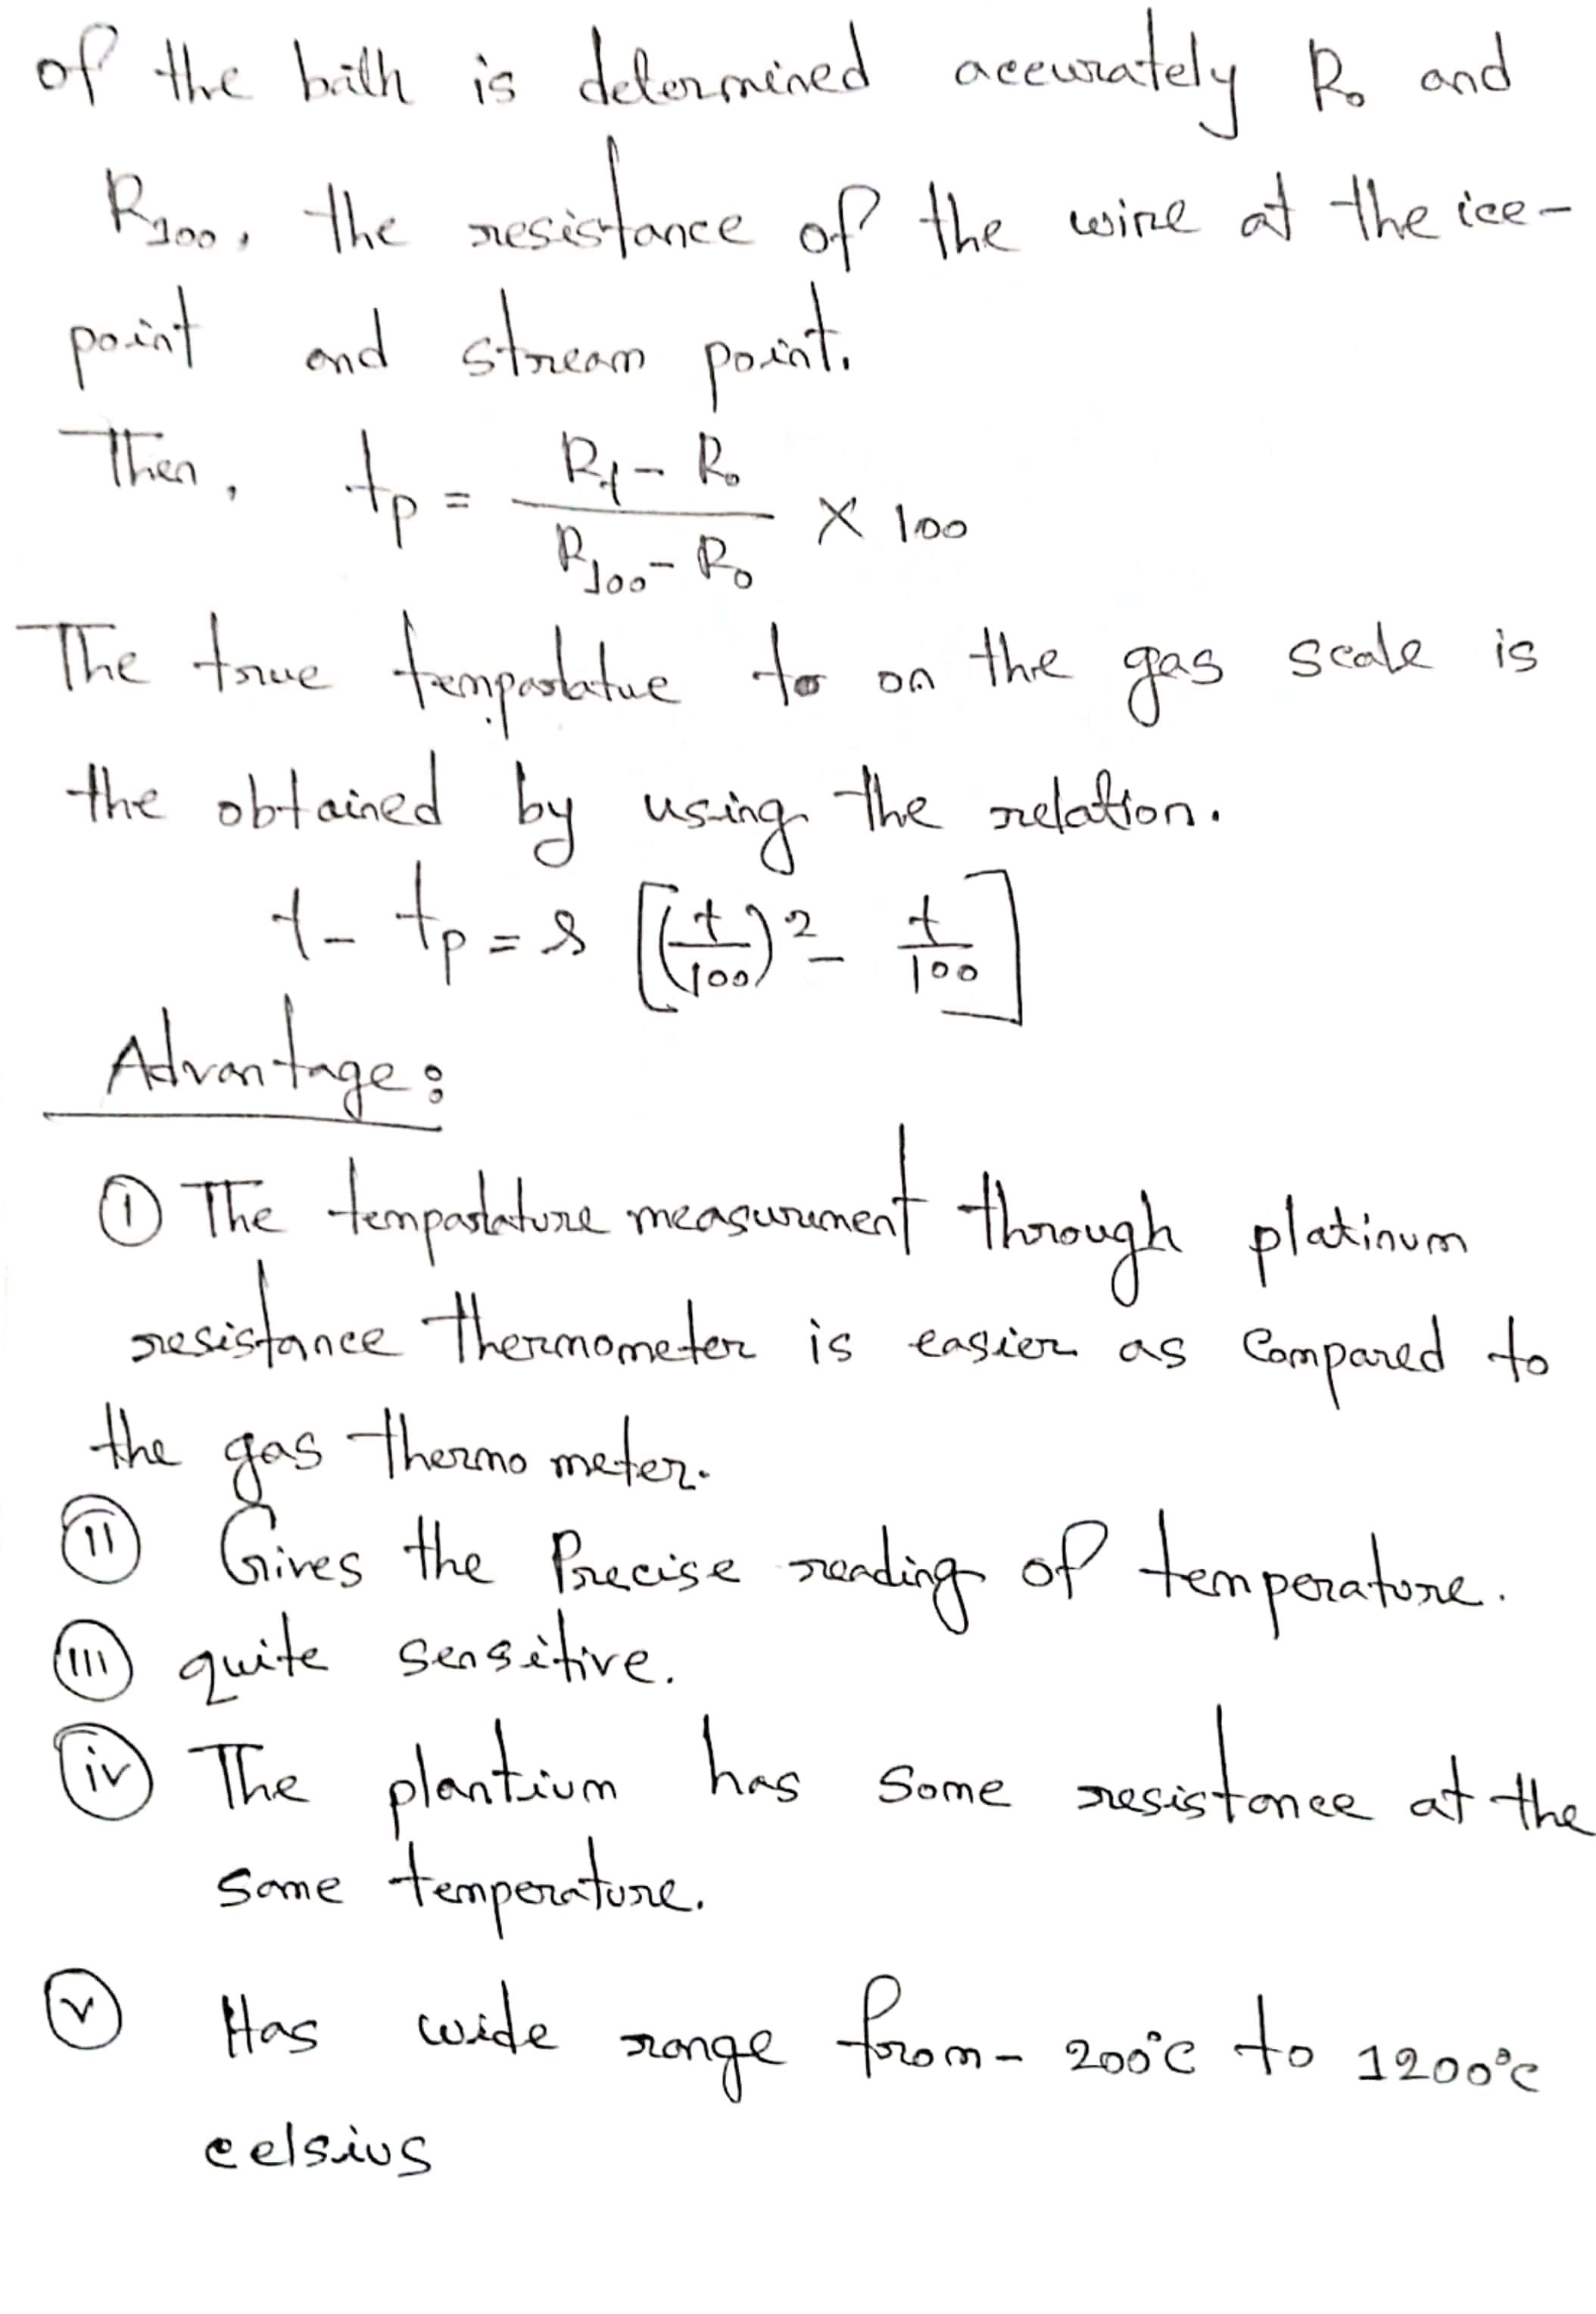 of the bath is determined accurately R₀ and
R₁₀₀, the resistance of the wire at the ice-
point and stream point.
Then, tp = (Rt - R₀) / (R₁₀₀ - R₀) × 100
The true temparatue to on the gas scale is
the obtained by using the relation.
t - tp = δ [(t/100)² - t/100]
Advantage:
(i) The temparature measurument through platinum
resistance thermometer is easier as Compared to
the gas thermo meter.
(ii) Gives the Precise reading of temperature.
(iii) quite sensitive.
(iv) The plantium has Some resistance at the
same temperature.
(v) Has wide range from - 200°c to 1200°c
celsius